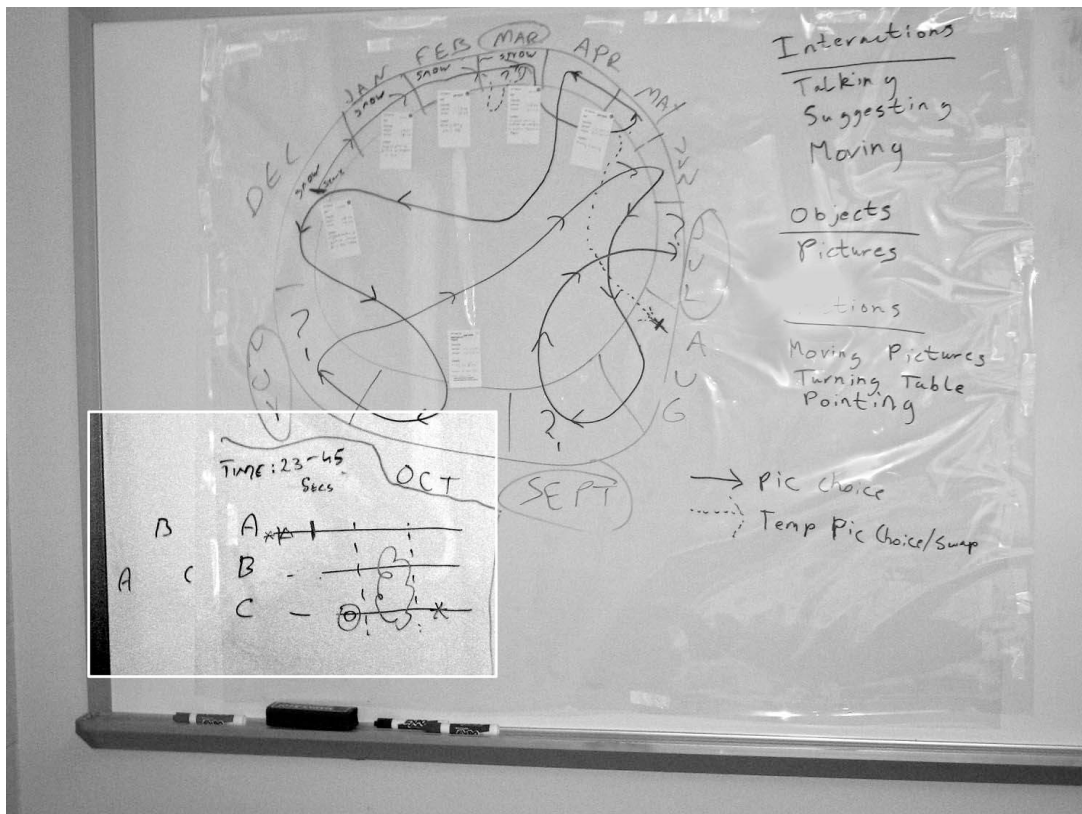 FEB
MAR
APR
JAN
MAY
DEC
JUN
JULY
AUG
SEPT
OCT
NOV
snow
snow
snow
snow
?
?
?
Interactions
Talking
Suggesting
Moving
Objects
Pictures
tions
Moving Pictures
Turning Table
Pointing
Pic Choice
Temp Pic Choice/Swap
TIME: 23-45
SECS
B
A
A
C
B
C